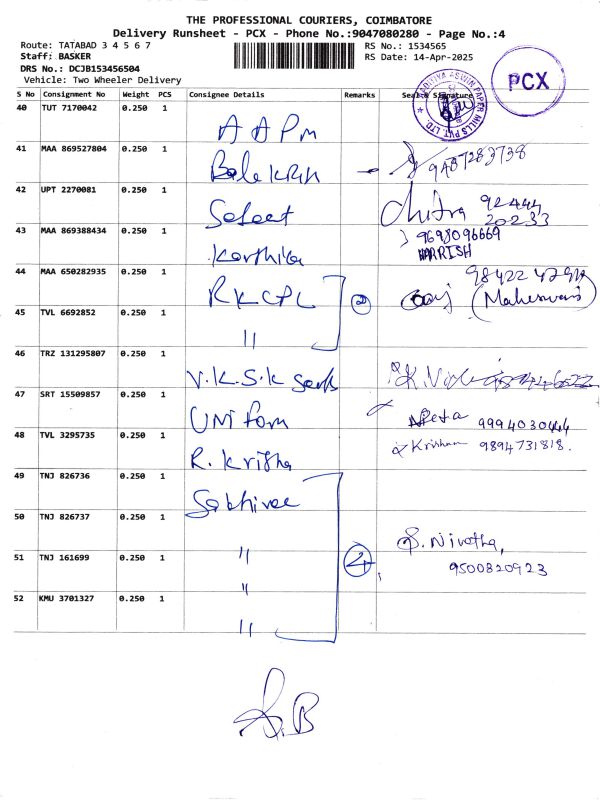 THE PROFESSIONAL COURIERS, COIMBATORE
Delivery Runsheet - PCX - Phone No.:9047080280 - Page No.:4
Route: TATABAD 3 4 5 6 7 RS No.: 1534565
Staff: BASKER RS Date: 14-Apr-2025
DRS No.: DCJB153456504
Vehicle: Two Wheeler Delivery
PCX
S No Consignment No Weight PCS Consignee Details Remarks Seal & Signature
40 TUT 7170042 0.250 1 AAPM
41 MAA 869527804 0.250 1 9487283738
42 UPT 2270081 0.250 1 Select Chitra 92444 20233
43 MAA 869388434 0.250 1 Karthika 9698096669
HARRISH
44 MAA 650282935 0.250 1 RKCPL 2 (Maheswari)
45 TVL 6692852 0.250 1 "
46 TRZ 131295807 0.250 1 V.K.S.K
47 SRT 15509857 0.250 1 UNIform 9994030444
48 TVL 3295735 0.250 1 R. Krisha Krishan 9894731818.
49 TNJ 826736 0.250 1
50 TNJ 826737 0.250 1 " S. Nivetha,
51 TNJ 161699 0.250 1 " 4 9500820923
52 KMU 3701327 0.250 1 "